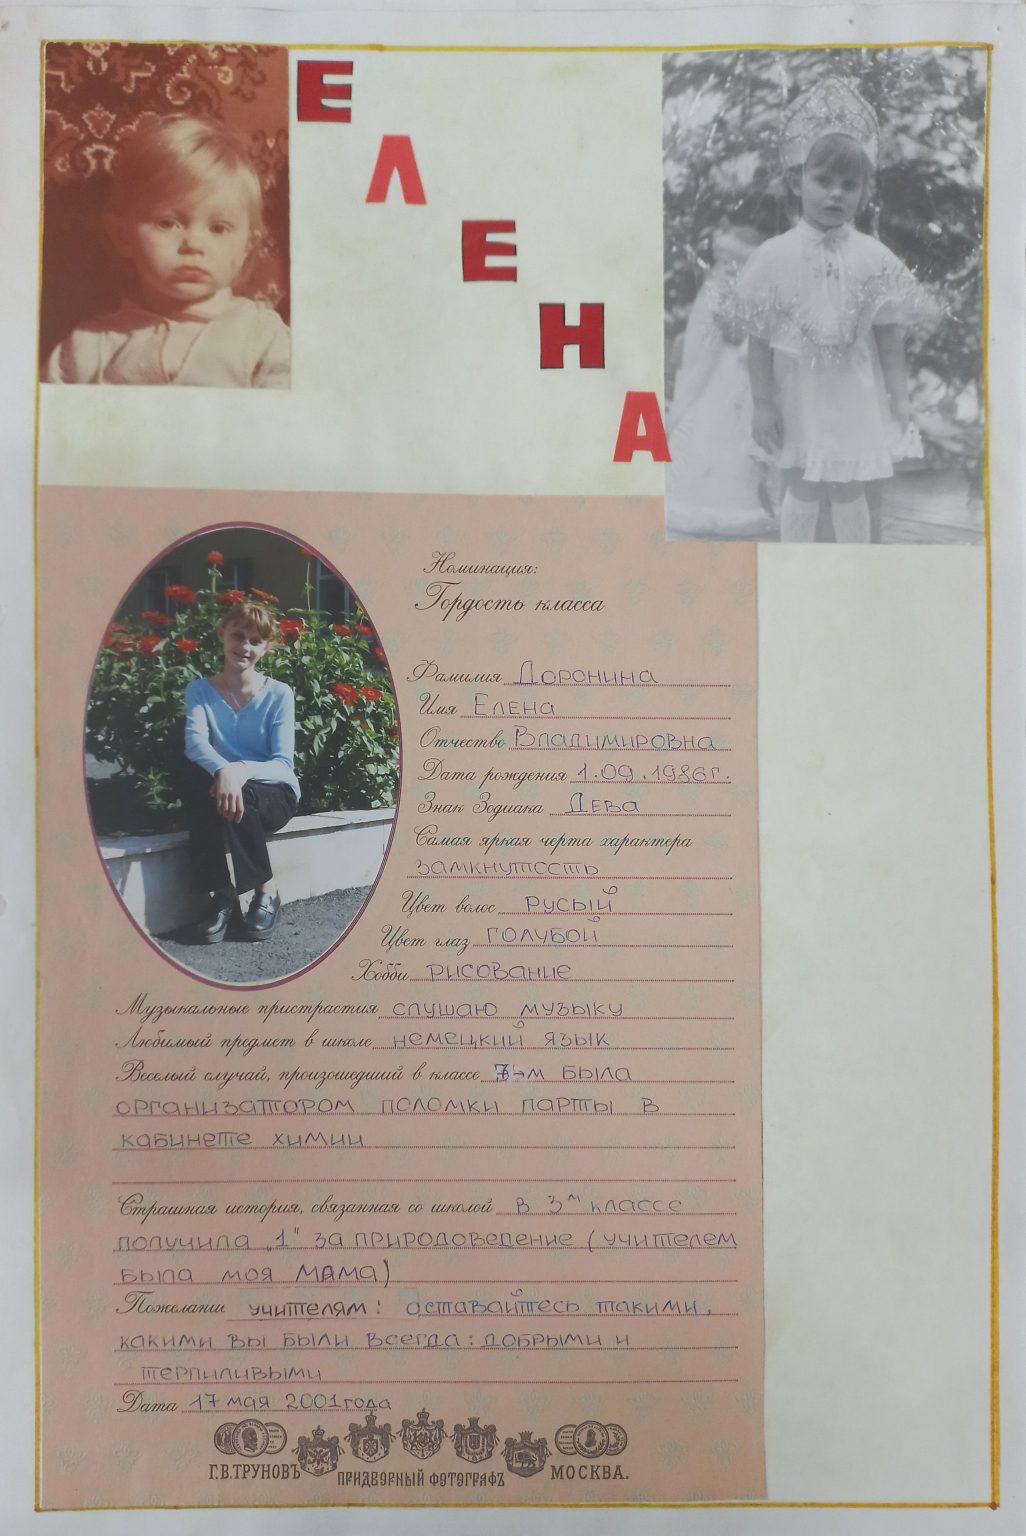 ЕЛЕНА
Номинация:
Гордость класса
Фамилия Доронина
Имя Елена
Отчество Владимировна
Дата рождения 1.09.1986г.
Знак Зодиака Дева
Самая яркая черта характера
замкнутость
Цвет волос русый
Цвет глаз голубой
Хобби рисование
Музыкальные пристрастия слушаю музыку
Любимый предмет в школе немецкий язык
Веселый случай, произошедший в классе была
организатором поломки парты в
кабинете химии
Страшная история, связанная со школой в 3м классе
получила „1" за природоведение (учителем
была моя мама)
Пожелание учителям: оставайтесь такими,
какими вы были всегда: добрыми и
терпиливыми
Дата 17 мая 2001 года
Г.В.ТРУНОВЪ ПРИДВОРНЫЙ ФОТОГРАФЪ МОСКВА.